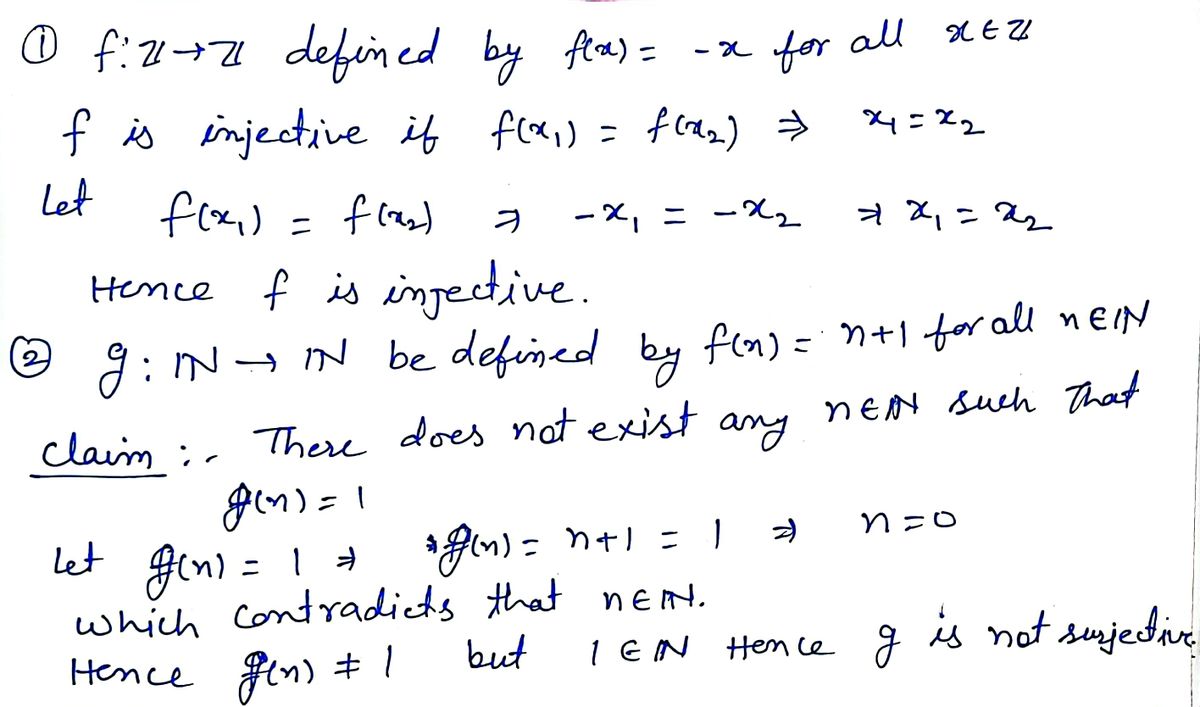 ① f: ℤ→ℤ defined by f(x) = -x for all x∈ℤ
f is injective if f(x₁) = f(x₂) ⇒ x₁ = x₂
Let f(x₁) = f(x₂) ⇒ -x₁ = -x₂ ⇒ x₁ = x₂
Hence f is injective.
② g: ℕ → ℕ be defined by f(n) = n+1 for all n∈ℕ
Claim :- There does not exist any n∈ℕ such that
g(n) = 1
Let g(n) = 1 ⇒ g(n) = n+1 = 1 ⇒ n=0
which contradicts that n∈ℕ.
Hence g(n) ≠ 1 but 1∈ℕ Hence g is not surjective